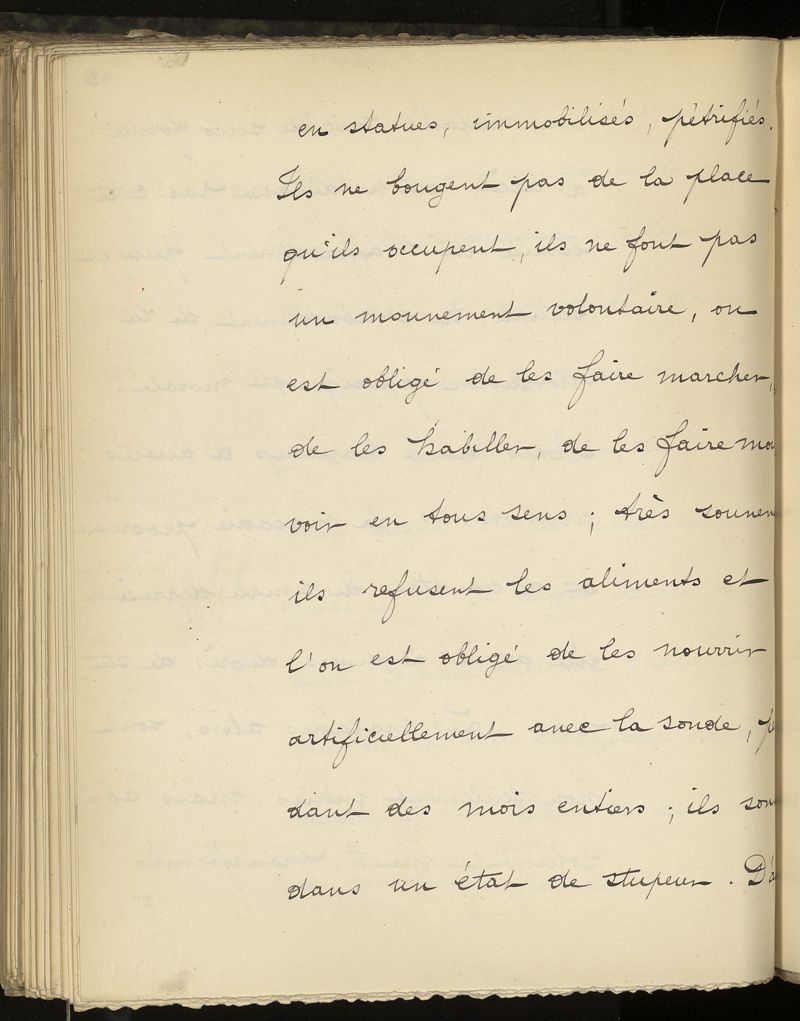 en statues, immobilisés, pétrifiés.
Ils ne bougent pas de la place
qu'ils occupent, ils ne font pas
un mouvement volontaire, on
est obligé de les faire marcher,
de les habiller, de les faire mou
voir en tous sens ; très souven
ils refusent les aliments et
l'on est obligé de les nourrir
artificiellement avec la sonde,
dant des mois entiers ; ils son
dans un état de stupeur.